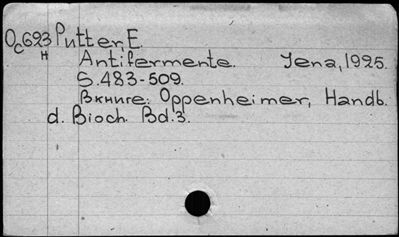 Oc693 Putter, E.
H
Antifermente. Jena, 1925.
S. 483-509.
В книге: Oppenheimer, Handb.
d. Bioch. Bd. 3.